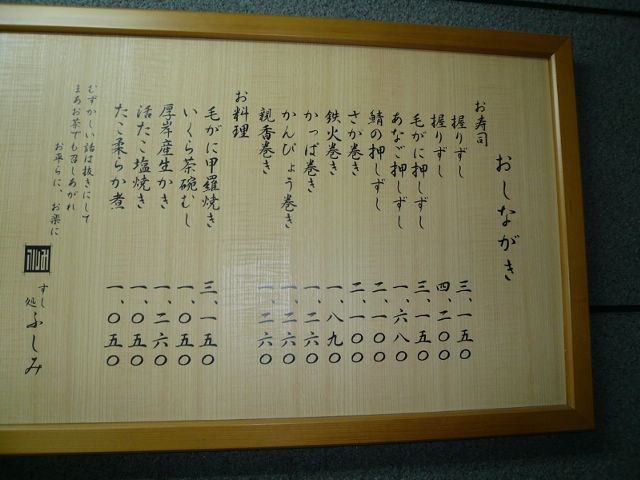 おしながき
お寿司
握りずし 三、一五〇
握りずし 四、二〇〇
毛がに押しずし 三、一五〇
あなご押しずし 一、六八〇
鯖の押しずし 二、一〇〇
さか巻き 二、一〇〇
鉄火巻き 一、八九〇
かっぱ巻き 一、二六〇
かんぴょう巻き 一、二六〇
親香巻き 一、二六〇
お料理
毛がに甲羅焼き 三、一五〇
いくら茶碗むし 一、〇五〇
厚岸産生かき 一、二六〇
活たこ塩焼き 一、〇五〇
たこ柔らか煮 一、〇五〇
むずかしい話は抜きにして
まあお茶でも召しあがれ
お平らに、お楽に
ふしみ
すし処 ふしみ